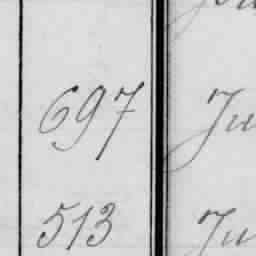 697 Ju
513 Ju